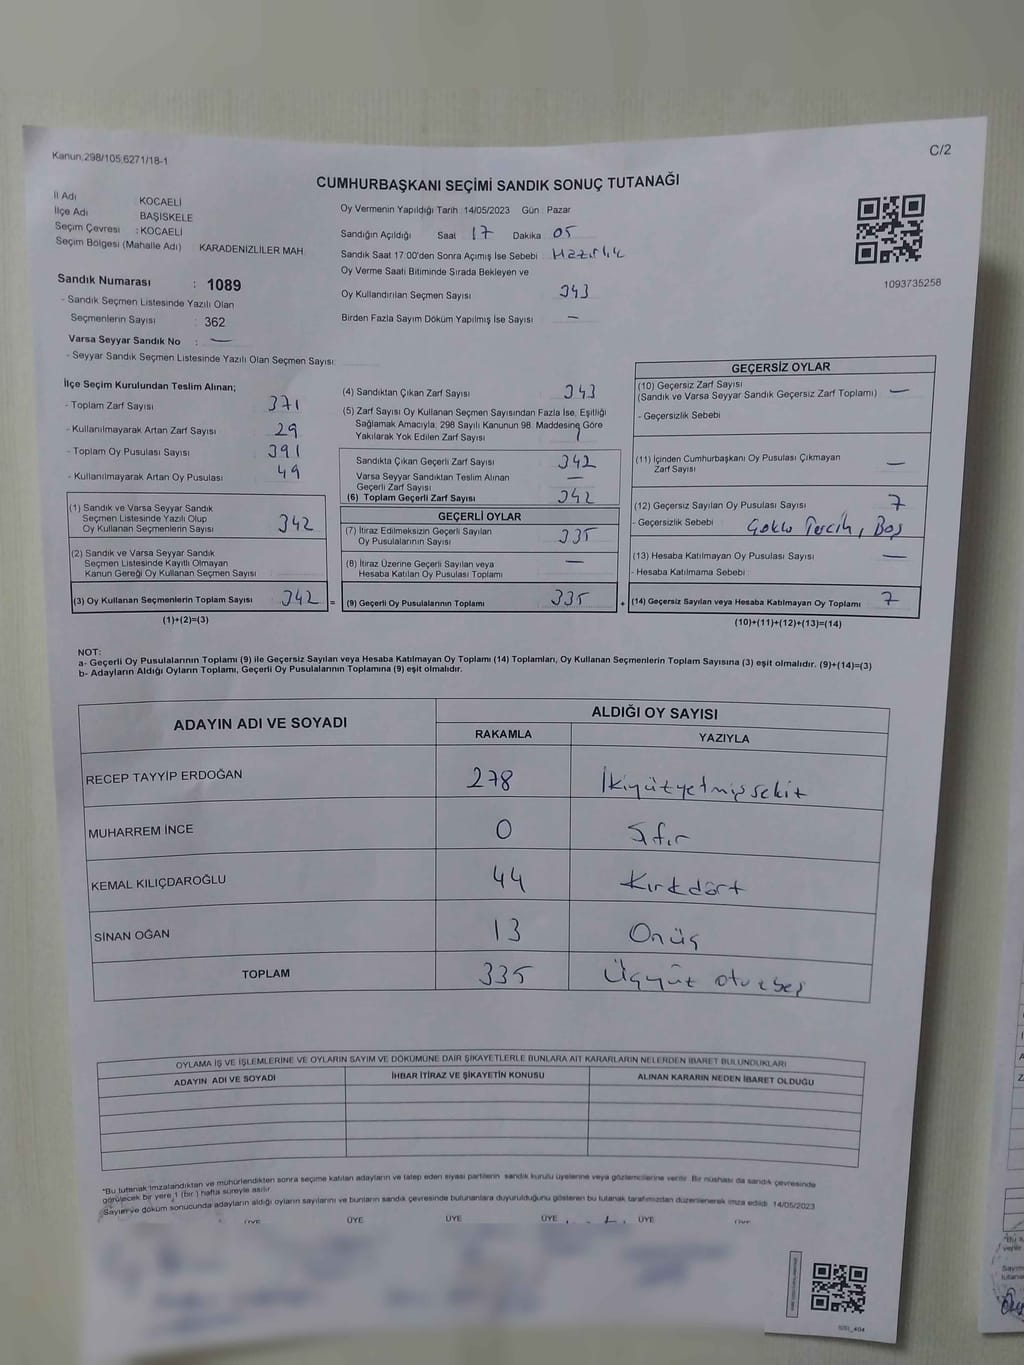 Kanun.298/105,6271/18-1
C/2
CUMHURBAŞKANI SEÇİMİ SANDIK SONUÇ TUTANAĞI
İl Adı KOCAELİ
İlçe Adı BAŞİSKELE
Seçim Çevresi : KOCAELİ
Seçim Bölgesi (Mahalle Adı) KARADENİZLİLER MAH.
Sandık Numarası : 1089
- Sandık Seçmen Listesinde Yazılı Olan
Seçmenlerin Sayısı : 362
Varsa Seyyar Sandık No : —
- Seyyar Sandık Seçmen Listesinde Yazılı Olan Seçmen Sayısı:
Oy Vermenin Yapıldığı Tarih 14/05/2023 Gün : Pazar
Sandığın Açıldığı Saat 17 Dakika 05
Sandık Saat 17:00'den Sonra Açımış İse Sebebi : Hazırlık
Oy Verme Saati Bitiminde Sırada Bekleyen ve
Oy Kullandırılan Seçmen Sayısı 343
Birden Fazla Sayım Döküm Yapılmış İse Sayısı —
1093735258
İlçe Seçim Kurulundan Teslim Alınan;
- Toplam Zarf Sayısı 371
- Kullanılmayarak Artan Zarf Sayısı 29
- Toplam Oy Pusulası Sayısı 391
- Kullanılmayarak Artan Oy Pusulası 49
(1) Sandık ve Varsa Seyyar Sandık
Seçmen Listesinde Yazılı Olup
Oy Kullanan Seçmenlerin Sayısı 342
(2) Sandık ve Varsa Seyyar Sandık
Seçmen Listesinde Kayıtlı Olmayan
Kanun Gereği Oy Kullanan Seçmen Sayısı
(3) Oy Kullanan Seçmenlerin Toplam Sayısı 342 =
(1)+(2)=(3)
(4) Sandıktan Çıkan Zarf Sayısı 343
(5) Zarf Sayısı Oy Kullanan Seçmen Sayısından Fazla İse, Eşitliği
Sağlamak Amacıyla, 298 Sayılı Kanunun 98. Maddesine Göre
Yakılarak Yok Edilen Zarf Sayısı 1
Sandıkta Çıkan Geçerli Zarf Sayısı 342
Varsa Seyyar Sandıktan Teslim Alınan
Geçerli Zarf Sayısı —
(6) Toplam Geçerli Zarf Sayısı 342
GEÇERLİ OYLAR
(7) İtiraz Edilmeksizin Geçerli Sayılan
Oy Pusulalarının Sayısı 335
(8) İtiraz Üzerine Geçerli Sayılan veya
Hesaba Katılan Oy Pusulası Toplamı —
(9) Geçerli Oy Pusulalarının Toplamı 335 +
GEÇERSİZ OYLAR
(10) Geçersiz Zarf Sayısı
(Sandık ve Varsa Seyyar Sandık Geçersiz Zarf Toplamı) —
- Geçersizlik Sebebi
(11) İçinden Cumhurbaşkanı Oy Pusulası Çıkmayan
Zarf Sayısı —
(12) Geçersiz Sayılan Oy Pusulası Sayısı 7
- Geçersizlik Sebebi Çoklu Tercih, Boş
(13) Hesaba Katılmayan Oy Pusulası Sayısı —
- Hesaba Katılmama Sebebi
(14) Geçersiz Sayılan veya Hesaba Katılmayan Oy Toplamı 7
(10)+(11)+(12)+(13)=(14)
NOT:
a- Geçerli Oy Pusulalarının Toplamı (9) ile Geçersiz Sayılan veya Hesaba Katılmayan Oy Toplamı (14) Toplamları, Oy Kullanan Seçmenlerin Toplam Sayısına (3) eşit olmalıdır. (9)+(14)=(3)
b- Adayların Aldığı Oyların Toplamı, Geçerli Oy Pusulalarının Toplamına (9) eşit olmalıdır.
ADAYIN ADI VE SOYADI
ALDIĞI OY SAYISI
RAKAMLA YAZIYLA
RECEP TAYYİP ERDOĞAN 278 İkiyüzyetmişsekiz
MUHARREM İNCE 0 Sıfır
KEMAL KILIÇDAROĞLU 44 Kırkdört
SİNAN OĞAN 13 Onüç
TOPLAM 335 Üçyüz otuzbeş
OYLAMA İŞ VE İŞLEMLERİNE VE OYLARIN SAYIM VE DÖKÜMÜNE DAİR ŞİKAYETLERLE BUNLARA AİT KARARLARIN NELERDEN İBARET BULUNDUKLARI
ADAYIN ADI VE SOYADI İHBAR İTİRAZ VE ŞİKAYETİN KONUSU ALINAN KARARIN NEDEN İBARET OLDUĞU
*Bu tutanak imzalandıktan ve mühürlendikten sonra seçime katılan adayların ve talep eden siyasi partilerin sandık kurulu üyelerine veya gözlemcilerine verilir. Bir nüshası da sandık çevresinde
görülecek bir yere 1 (bir ) hafta süreyle asılır.
Sayım ve döküm sonucunda adayların aldığı oyların sayılarını ve bunların sandık çevresinde bulunanlara duyurulduğunu gösteren bu tutanak tarafımızdan düzenlenerek imza edildi. 14/05/2023
ÜYE ÜYE ÜYE ÜYE ÜYE